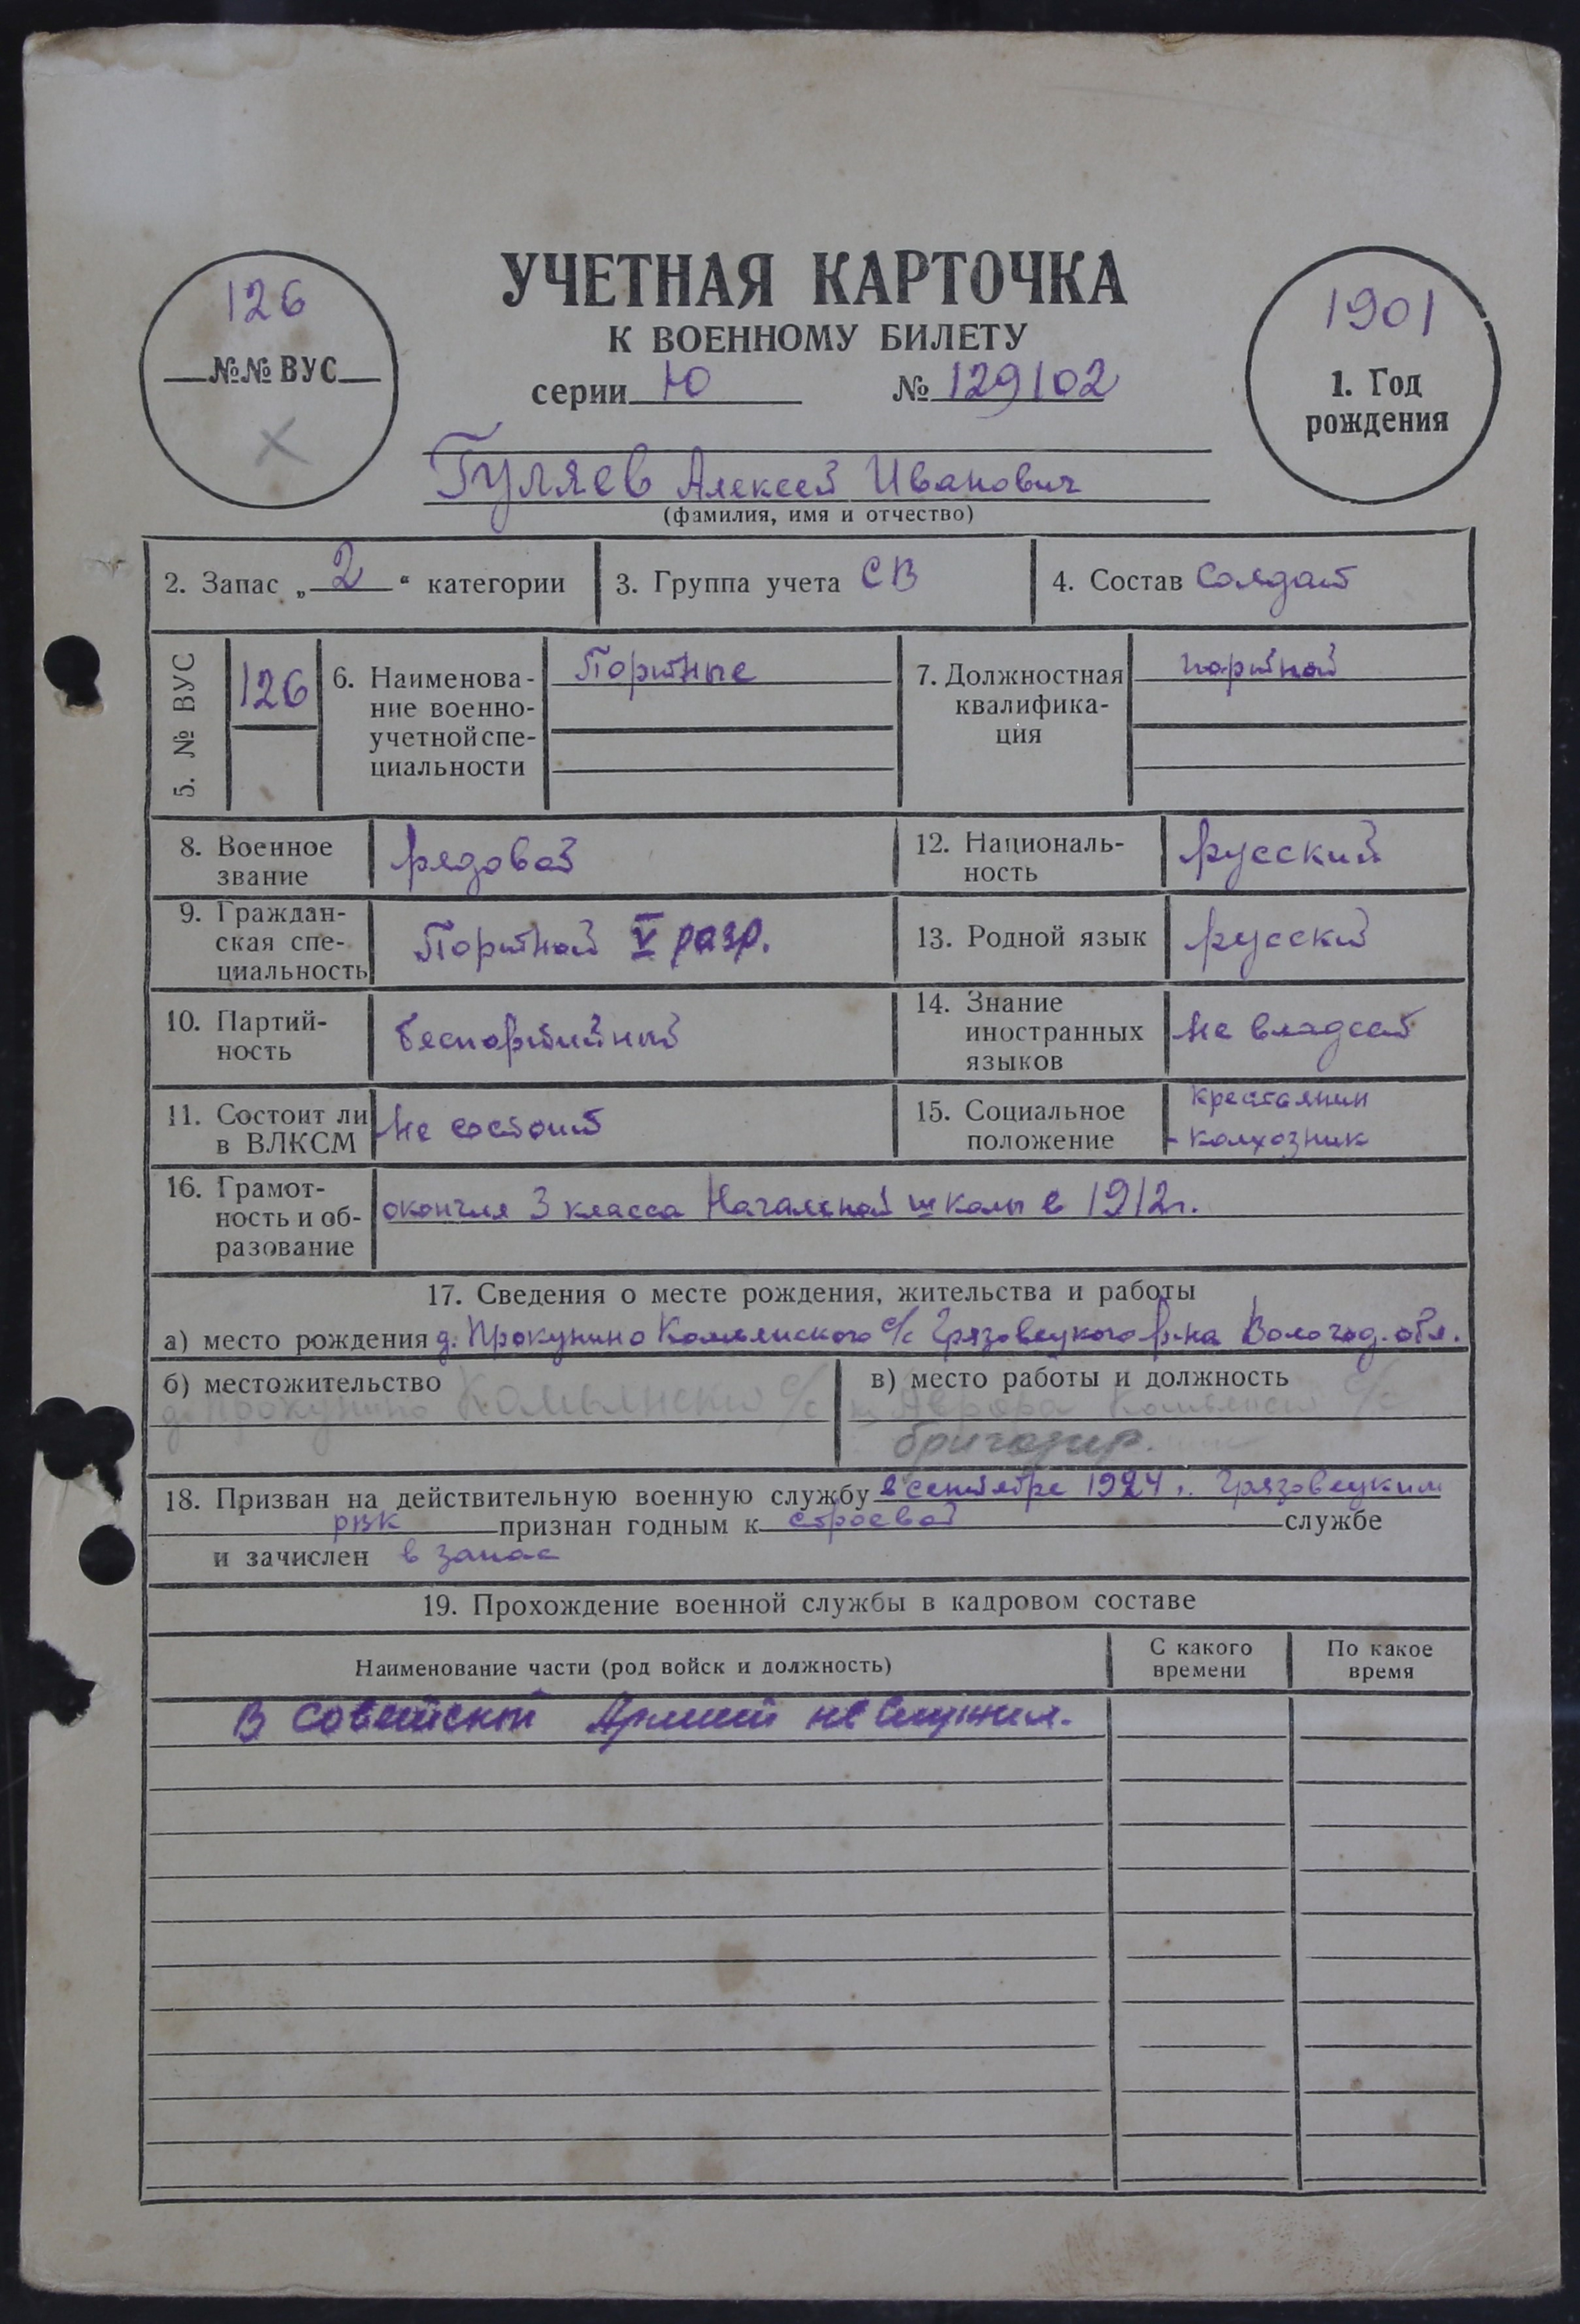 УЧЕТНАЯ КАРТОЧКА
К ВОЕННОМУ БИЛЕТУ
серии Ю № 129102
126
№№ ВУС
1901
1. Год
рождения
Гуляев Алексей Иванович
(фамилия, имя и отчество)
2. Запас „ 2 “ категории
3. Группа учета СВ
4. Состав Солдат
5. № ВУС
126
6. Наименова-
ние военно-
учетной спе-
циальности
Портные
7. Должностная
квалифика-
ция
портной
8. Военное
звание
рядовой
12. Националь-
ность
русский
9. Граждан-
ская спе-
циальность
Портной V разр.
13. Родной язык
русский
10. Партий-
ность
беспартийный
14. Знание
иностранных
языков
не владеет
11. Состоит ли
в ВЛКСМ
Не состоит
15. Социальное
положение
крестьянин
- колхозник
16. Грамот-
ность и об-
разование
окончил 3 класса Начальной школы в 1912г.
17. Сведения о месте рождения, жительства и работы
а) место рождения д. Прокунино Комьянского с/с Грязовецкого р-на Вологод. обл.
б) местожительство
д. Прокунино Комьянский с/с
в) место работы и должность
Аврора Комьянский с/с
бригадир.
18. Призван на действительную военную службу в сентябре 1924 г. Грязовецким
РВК признан годным к строевой службе
и зачислен в запас
19. Прохождение военной службы в кадровом составе
Наименование части (род войск и должность)
С какого
времени
По какое
время
В советской Армии не служил.